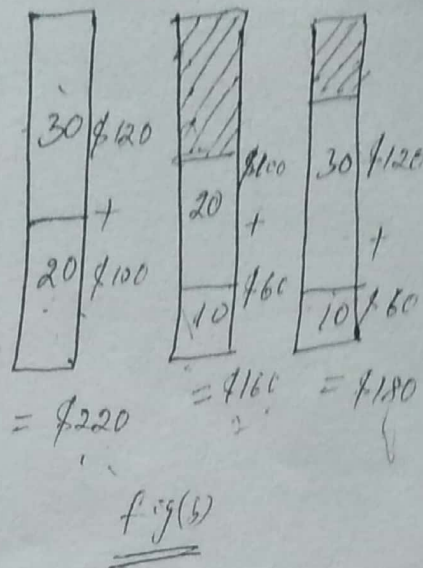 30 $120
+
20 $100
= $220
$100
20
+
$60
10
= $160
30 $120
+
10 $60
= $180
fig(b)